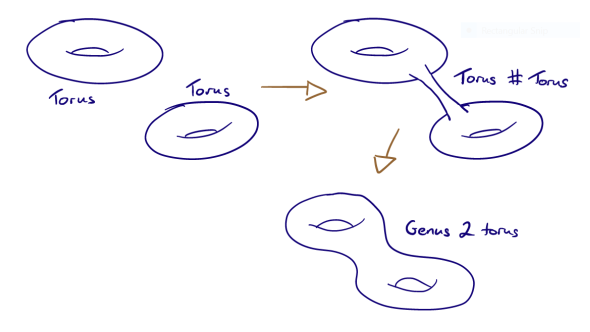 Torus
Torus
Torus # Torus
Genus 2 torus